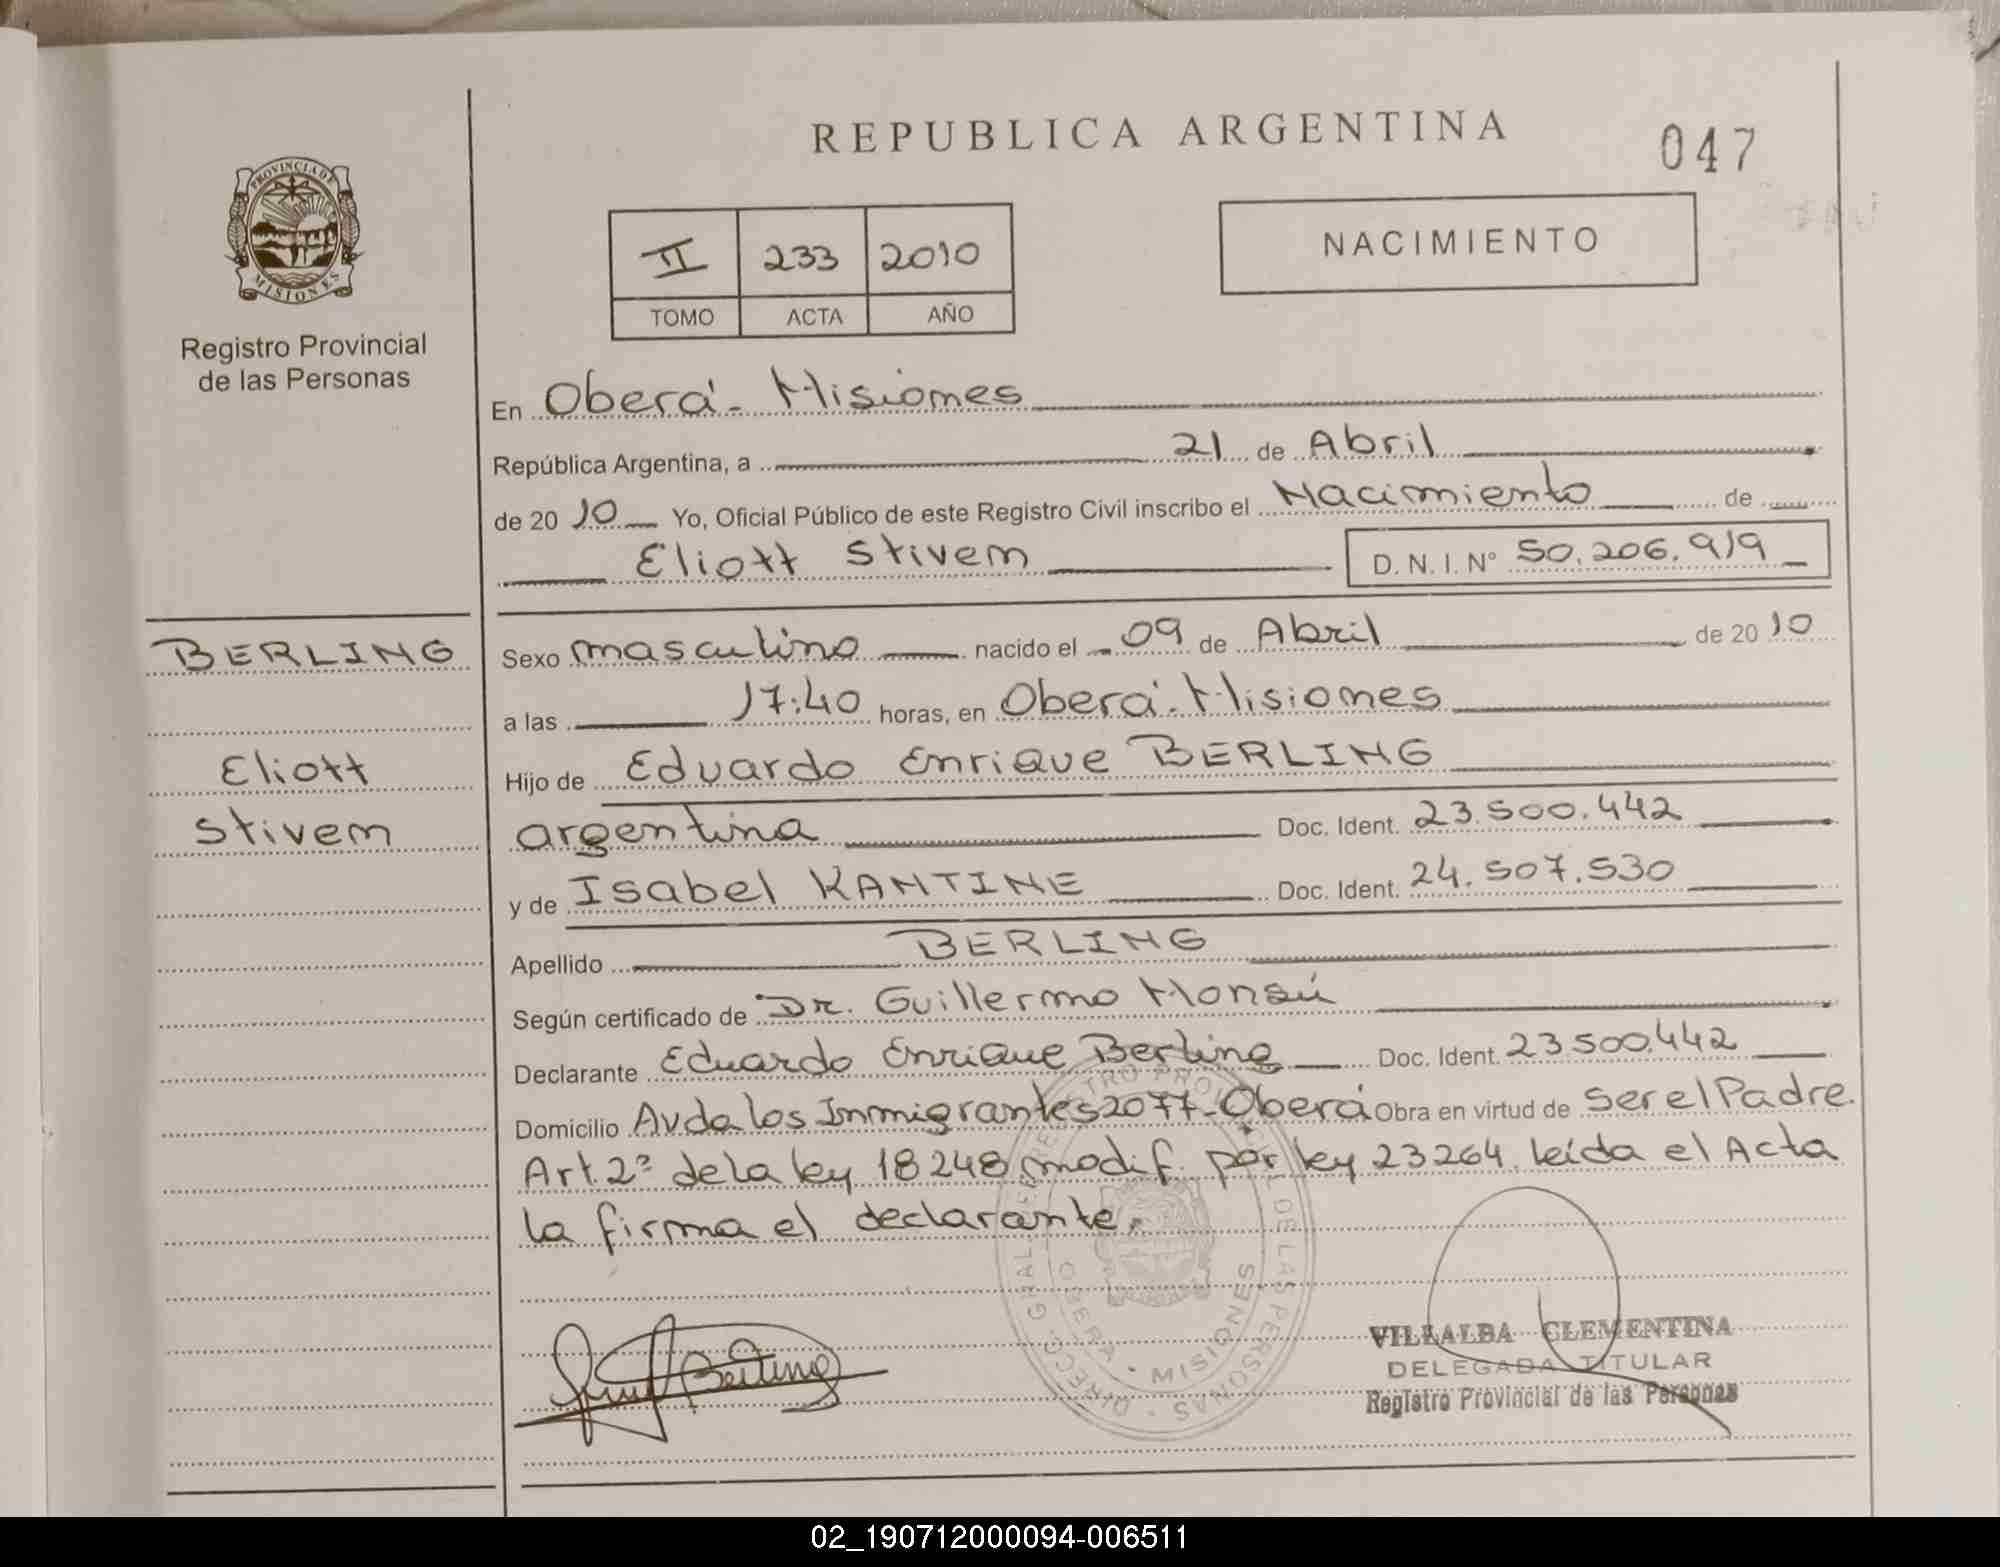 REPUBLICA ARGENTINA
047
PROVINCIA DE
MISIONES
Registro Provincial
de las Personas
II 233 2010
TOMO ACTA AÑO
NACIMIENTO
En Oberá - Misiones
República Argentina, a 21 de Abril
de 20 10 Yo, Oficial Público de este Registro Civil inscribo el Nacimiento de
Eliott Stivem D. N. I. N° 50.206.919
BERLING
Eliott
Stivem
Sexo masculino nacido el 09 de Abril de 20 10
a las 17:40 horas, en Oberá - Misiones
Hijo de Eduardo Enrique BERLING
argentina Doc. Ident. 23.500.442
y de Isabel KANTINE Doc. Ident. 24.507.530
Apellido BERLING
Según certificado de Dr. Guillermo Monsú
Declarante Eduardo Enrique Berling Doc. Ident. 23500.442
Domicilio Avda los Inmigrantes 2077 - Oberá Obra en virtud de ser el Padre.
Art. 2º de la ley 18248 modif. por ley 23264. leída el Acta
la firma el declarante.
Berling
VILLALBA CLEMENTINA
DELEGADA TITULAR
Registro Provincial de las Personas
DIRECC. GRAL. DEL REGISTRO PROVINCIAL DE LAS PERSONAS
OBERA - MISIONES
02_190712000094-006511